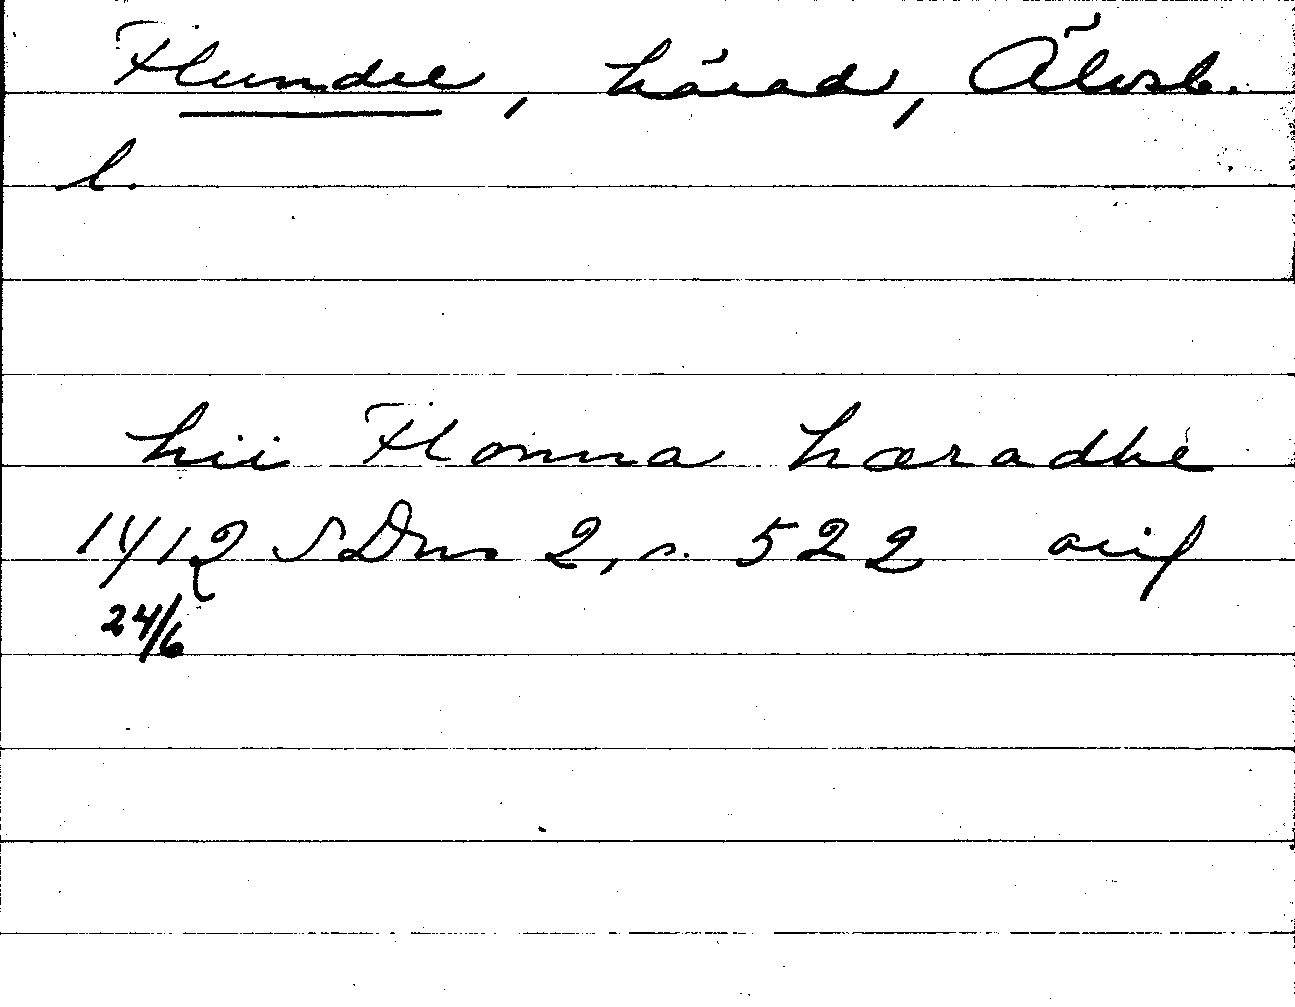 Flundre, härad, Älvsb.
l.
hii Flonna hæradhe
1412 SDns 2, s. 522 avs
24/6